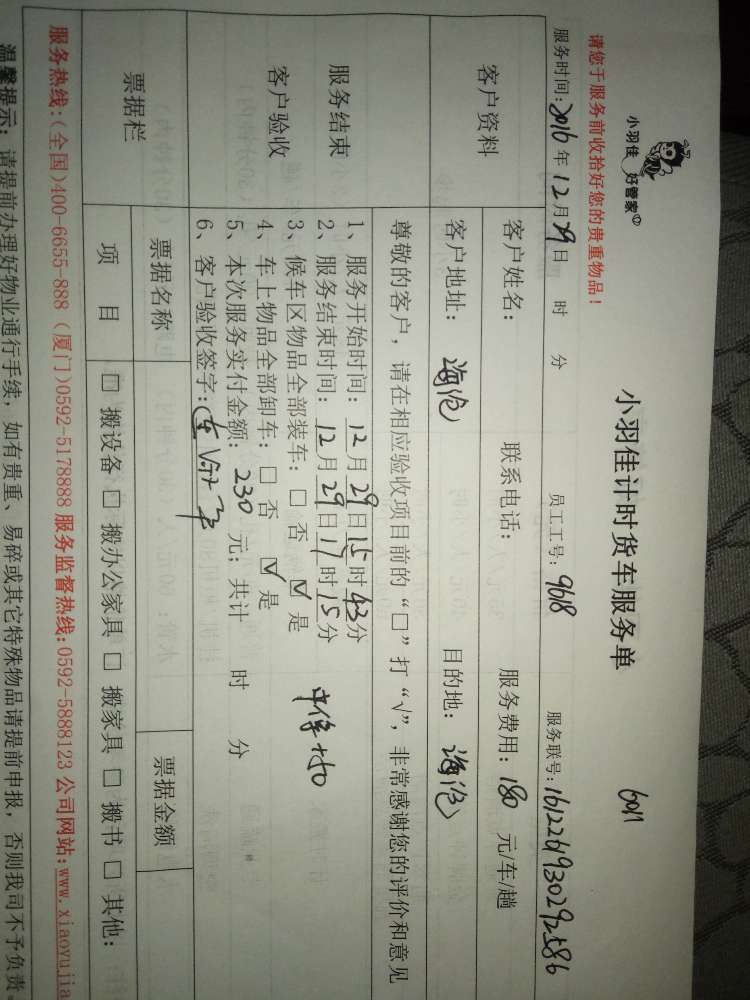 小羽佳 好管家
小羽佳计时货车服务单
6017
请您于服务前收拾好您的贵重物品！
服务时间：2016年12月29日 时 分 员工工号：9618 服务联号：1612261930292586
客户资料
客户姓名： 联系电话： 服务费用：180 元/车/趟
客户地址：海沧 目的地：海沧
服务结束客户验收
尊敬的客户，请在相应验收项目前的“□”打“√”，非常感谢您的评价和意见
1、服务开始时间：12月29日15时43分
2、服务结束时间：12月29日17时15分
3、候车区物品全部装车：□ 否 ☑ 是
4、车上物品全部卸车：□ 否 ☑ 是
5、本次服务实付金额：230 元；共计 时 分
6、客户验收签字：
票据栏
票据名称 票据金额
项 目 □ 搬设备 □ 搬办公家具 □ 搬家具 □ 搬书 □ 其他：
服务热线：(全国)400-6655-888 (厦门)0592-5178888 服务监督热线：0592-5888123 公司网站：www.xiaoyujia
温馨提示：请提前办理好物业通行手续，如有贵重、易碎或其它特殊物品请提前申报，否则我司不予负责。